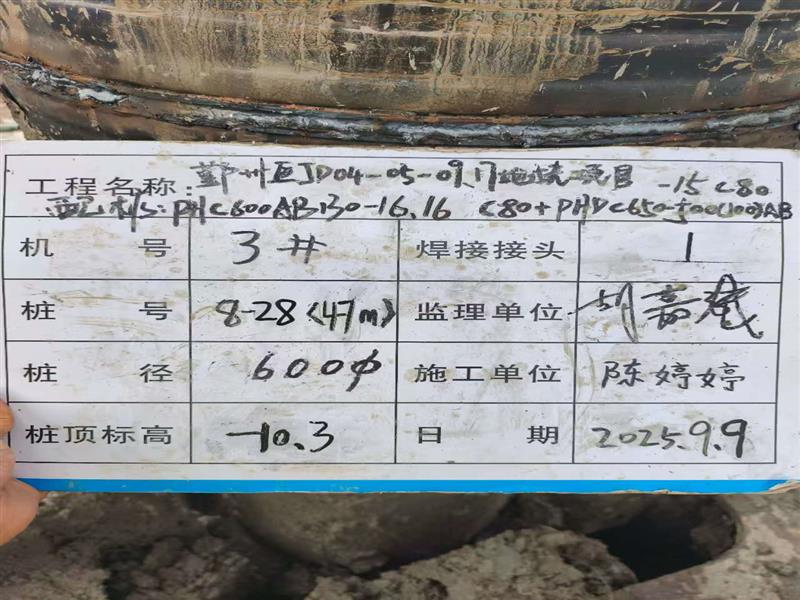 工程名称:鄞州区JD04-05-09,17地块项目 -15C80
配桩:PHC600AB130-16,16 C80+PHDC650-500(100)AB
机号 3# 焊接接头 1
桩号 8-28(47m) 监理单位 胡嘉
桩径 600φ 施工单位 陈婷婷
桩顶标高 -10.3 日期 2025.9.9